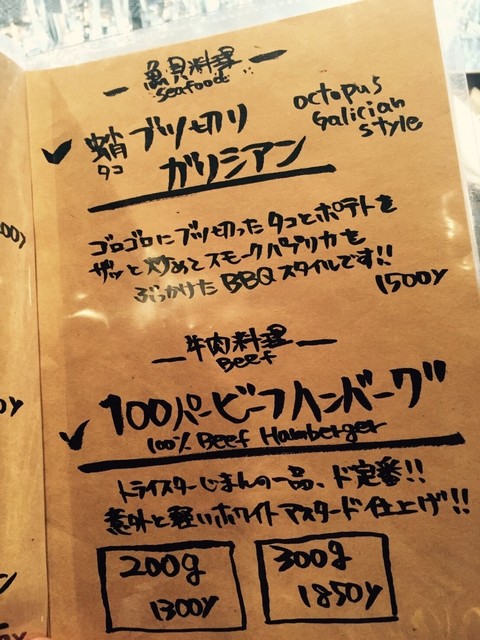 魚貝料理
Seafood
蛸ブツ切り
タコ
ガリシアン
octopus
Galician
style
ゴロゴロにブツ切ったタコとポテトを
ザッと炒めてスモークパプリカを
ぶっかけたBBQスタイルです!!
1500y
牛肉料理
Beef
100パービーフハンバーグ
100% Beef Hamberger
トライスターじまんの一品、ド定番!!
意外と軽いホワイトマスタード仕上げ!!
200g
1300y
300g
1850y